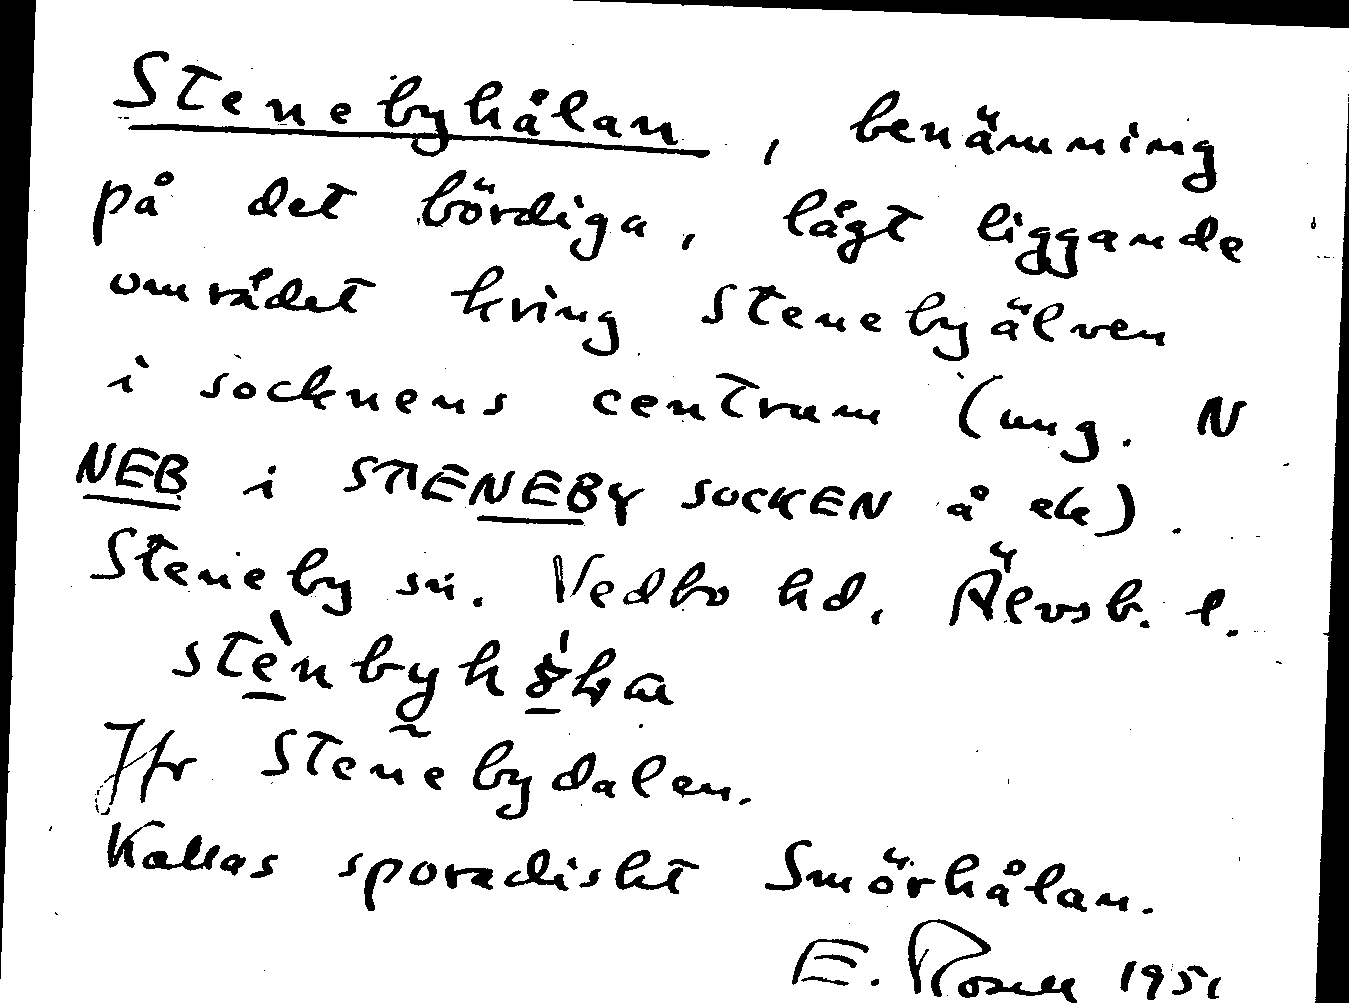 Stenebyhålan, benämning
på det bördiga, lågt liggande
området kring Stenebyälven
i socknens centrum (ung. N
NEB i STENEBY SOCKEN å ek).
Steneby sn. Vedbo hd, Älvsb. l.
Jfr Stenebydalen.
Kallas sporadiskt Smörhålan.
E. Rosell 1951